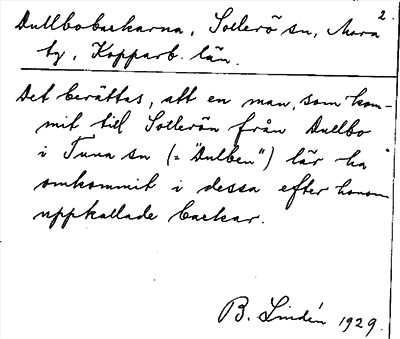 2.
Dullbobackarna, Sollerö sn, Mora
tg, Kopparb. län.
Det berättas, att en man, som kom-
mit till Sollerön från Dullbo
i Tuna sn (= "Dulben") lär ha
omkommit i dessa efter honom
uppkallade backar.
B. Lindén 1929.